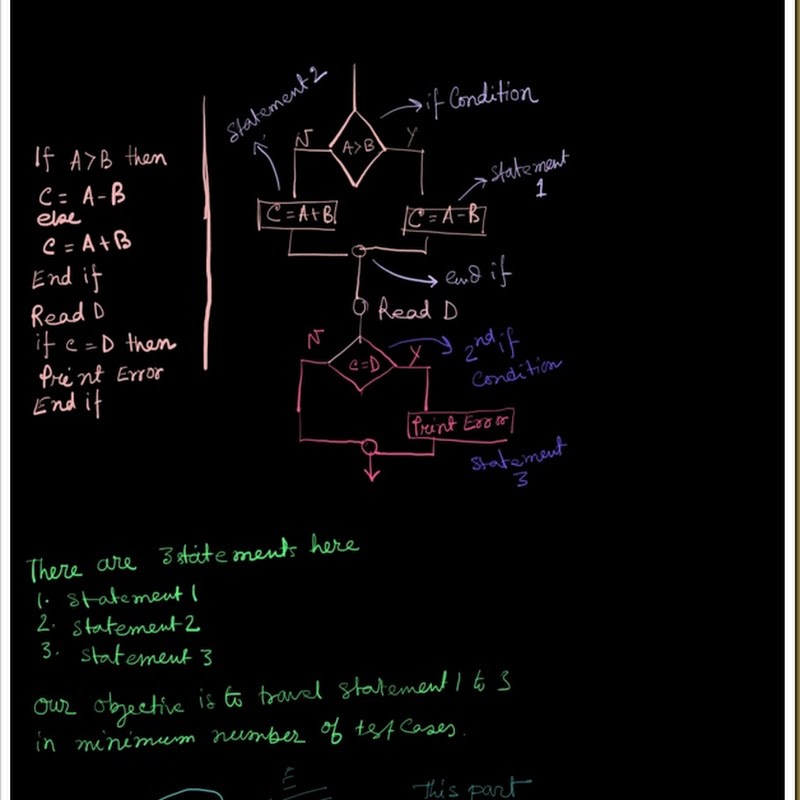 If A>B then
C = A-B
else
C = A+B
End if
Read D
if c=D then
Print Error
End if
Statement 2
if Condition
N
A>B
Y
statement
1
C=A+B
C=A-B
end if
Read D
N
C=D
Y
2nd if
Condition
Print Error
Statement
3
There are 3 statements here
1. Statement 1
2. Statement 2
3. Statement 3
our objective is to travel statement 1 to 3
in minimum number of test cases.
This part